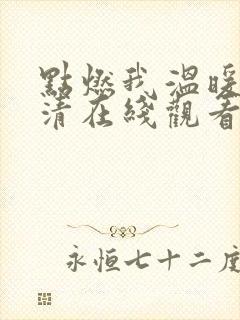 點燃我 溫暖
清在綫觀看
永恒七十二度